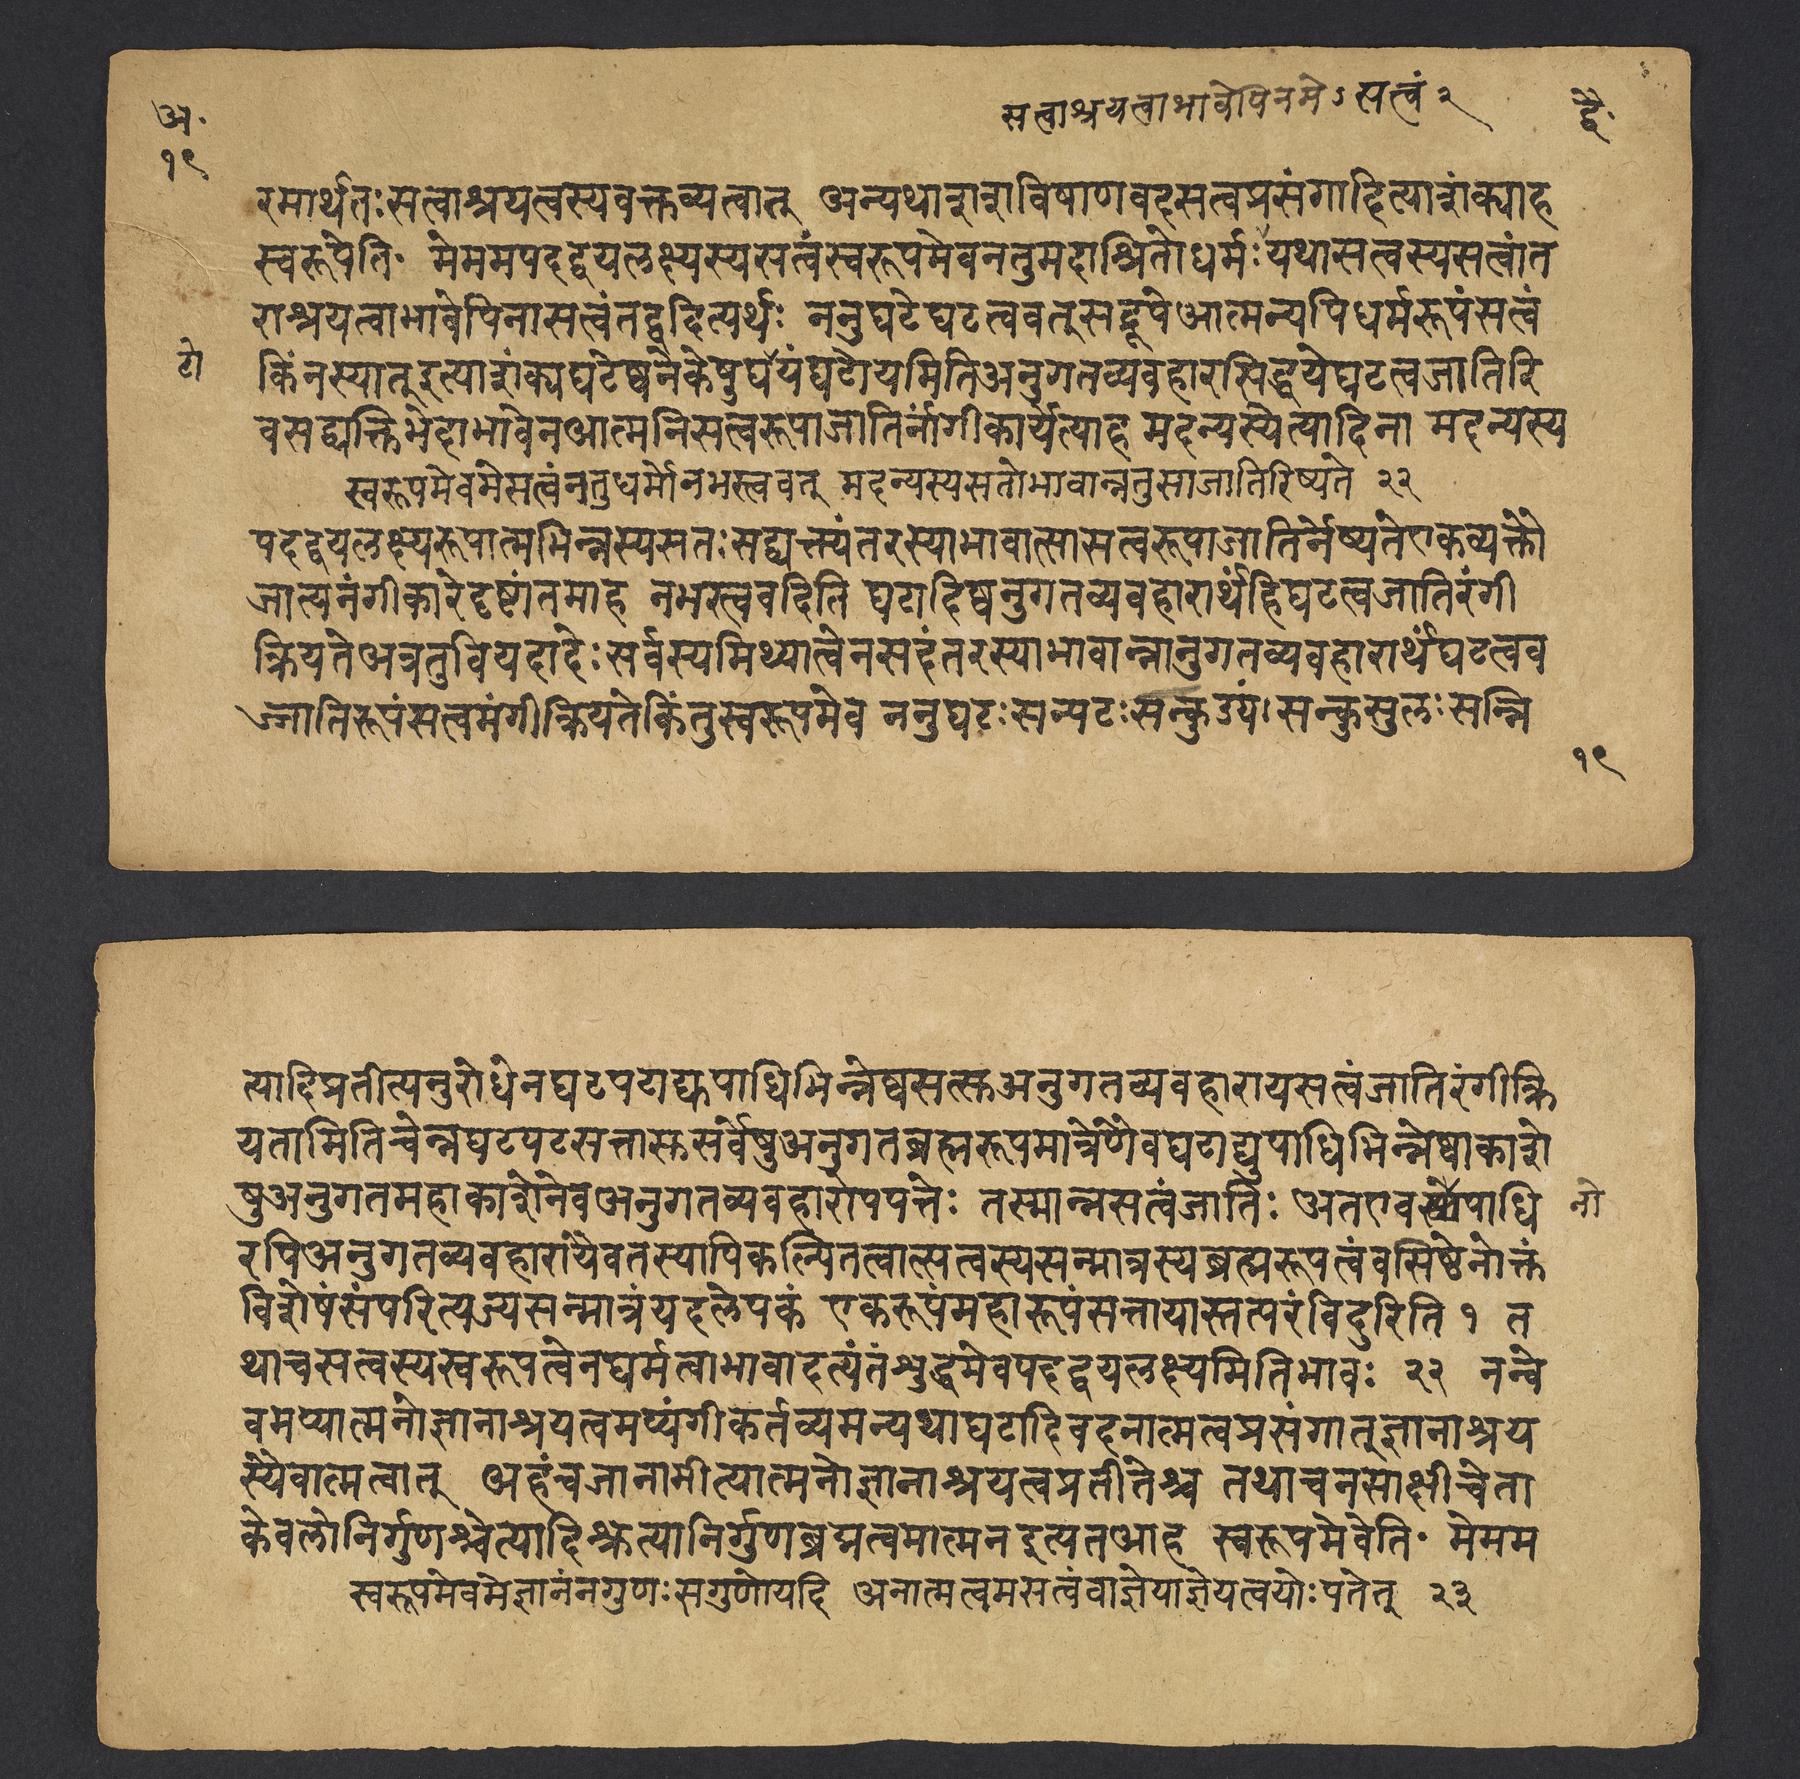 सत्वाश्रयत्वाभावेपिनमेऽसत्वं २
अ॰
द्वै॰
१९
रमार्थतःसत्वाश्रयत्वस्यवक्तव्यत्वात् अन्यथाशशविषाणवदसत्वप्रसंगादित्याशंक्याह
स्वरूपेति॰ मेममपदद्वयलक्ष्यस्यसत्वंस्वरूपमेवनतुमदाश्रितोधर्मःयथासत्वस्यसत्वांत
राश्रयत्वाभावेपिनासत्वंतद्वदित्यर्थः ननुघटेघटत्ववत्सद्रूपेआत्मन्यपिधर्मरूपंसत्वं
टो
किंनस्यात्इत्याशंक्यघटेष्वनेकेषुघयंघटोयमितिअनुगतव्यवहारसिद्धयेघटत्वजातिरि
वसद्व्यक्तिभेदाभावेनआत्मनिसत्वरूपाजातिर्नांगीकार्येत्याह मदन्यस्येत्यादिना मदन्यस्य
स्वरूपमेवमेसत्वंनतुधर्मोनभस्त्ववत् मदन्यस्यसतोभावान्नतुसाजातिरिष्यते २२
पदद्वयलक्ष्यरूपात्मभिन्नस्यसतःसद्व्यक्त्यंतरस्याभावात्सासत्वरूपाजातिर्नेष्यतेएकव्यक्तौ
जात्यनंगीकारेदृष्टांतमाह नभस्त्ववदिति घटादिष्वनुगतव्यवहारार्थंहिघटत्वजातिरंगी
क्रियतेअत्रतुवियदादेःसर्वस्यमिथ्यात्वेनसदंतरस्याभावान्नानुगतव्यवहारार्थंघटत्वव
ज्जातिरूपंसत्वमंगीक्रियतेकिंतुस्वरूपमेव ननुघटःसन्पटःसन्कुड्यं।सन्कुसुलःसन्नि
१९
त्यादिप्रतीत्यनुरोधेनघटपटाद्युपाधिभिन्नेष्वसत्सुअनुगतव्यवहारायसत्वंजातिरंगीक्रि
यतामितिचेन्नघटपटसत्तासुसर्वेषुअनुगतब्रह्मरूपमात्रेणैवघटाद्युपाधिभिन्नेष्वाकाशे
षुअनुगतमहाकाशेनेवअनुगतव्यवहारोपपत्तेः तस्मान्नसत्वंजातिः अतएवसोपाधि
नो
रपिअनुगतव्यवहारायैवतस्यापिकल्पितत्वात्सत्वस्यसन्मात्रस्यब्रह्मरूपत्वंवसिष्ठेनोक्तं
विशेषंसंपरित्यज्यसन्मात्रंयदलेपकं एकरूपंमहारूपंसत्तायास्तत्परंविदुरिति १ त
थाचसत्वस्यस्वरूपत्वेनघर्मत्वाभावादत्यंतंशुद्धमेवपदद्वयलक्ष्यमितिभावः २२ नन्वे
वमप्यात्मनोज्ञानाश्रयत्वमप्यंगीकर्तव्यमन्यथाघटादिवदनात्मत्वप्रसंगात्ज्ञानाश्रय
स्यैवात्मत्वात् अहंचजानामीत्यात्मनोज्ञानाश्रयत्वप्रतीतेश्च तथाचनसाक्षीचेता
केवलोनिर्गुणश्चेत्यादिश्रुत्यानिर्गुणब्रह्मत्वमात्मनइत्यतआह स्वरूपमेवेति॰ मेमम
स्वरूपमेवमेज्ञानंनगुणःसगुणोयदि अनात्मत्वमसत्वंवाज्ञेयाज्ञेयत्वयोःपतेत् २३